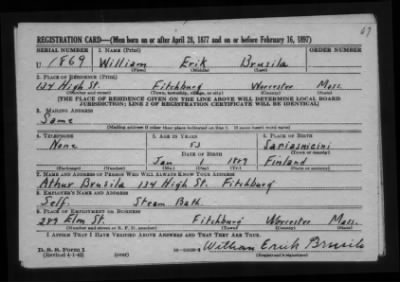 67
REGISTRATION CARD—(Men born on or after April 28, 1877 and on or before February 16, 1897)
SERIAL NUMBER 1. NAME (Print) ORDER NUMBER
U 1869 William Erik Brusila
(First) (Middle) (Last)
2. PLACE OF RESIDENCE (Print)
134 High St. Fitchburg Worcester Mass.
(Number and street) (Town, township, village, or city) (County) (State)
[THE PLACE OF RESIDENCE GIVEN ON THE LINE ABOVE WILL DETERMINE LOCAL BOARD
JURISDICTION; LINE 2 OF REGISTRATION CERTIFICATE WILL BE IDENTICAL]
3. MAILING ADDRESS
Same
[Mailing address if other than place indicated on line 2. If same insert word same]
4. TELEPHONE 5. AGE IN YEARS 6. PLACE OF BIRTH
None 53
DATE OF BIRTH
Jan 1 Finland
(Exchange) (Number) (Mo.) (Day) (Yr.) (State or country)
7. NAME AND ADDRESS OF PERSON WHO WILL ALWAYS KNOW YOUR ADDRESS
Arthur Brusila 134 High St. Fitchburg
8. EMPLOYER'S NAME AND ADDRESS
Self. Steam Bath.
9. PLACE OF EMPLOYMENT OR BUSINESS
Elm St. Fitchburg Worcester Mass.
(Number and street or R. F. D. number) (Town) (County) (State)
I AFFIRM THAT I HAVE VERIFIED ABOVE ANSWERS AND THAT THEY ARE TRUE.
D. S. S. Form 1
(Revised 4-1-42) (over) William Erick Brusila